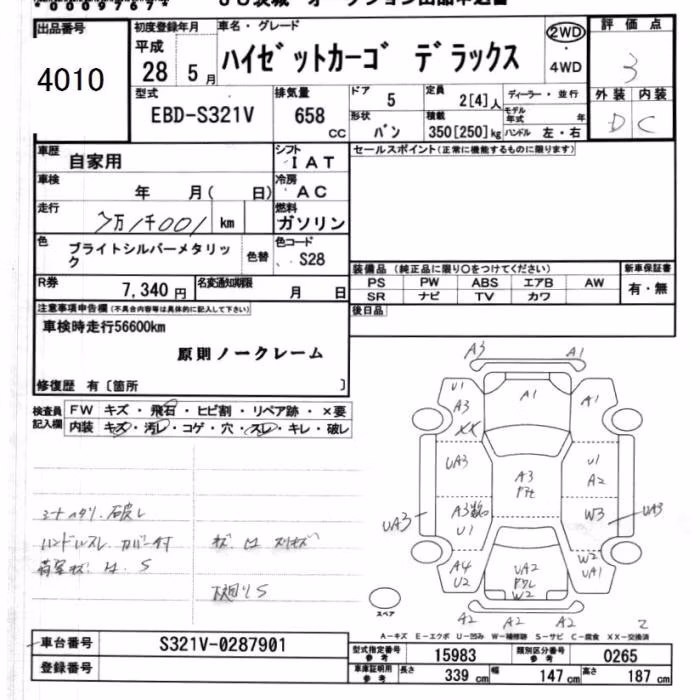 出品番号
4010
初度登録年月
平成
28 5月
車名・グレード
ハイゼットカーゴ デラックス
2WD
・
4WD
評価点
3
外装 内装
D C
型式
EBD-S321V
排気量
658 cc
ドア 5
定員 2[4]人
形状 バン
積載 350[250]kg
ディーラー・並行
モデル年式 年
ハンドル 左・右
車歴 自家用
シフト IAT
車検 年 月( 日)
冷房 AC
走行 7万1千001 km
燃料 ガソリン
色 ブライトシルバーメタリック
色替
色コード S28
R券 7,340円
名変通知期限 月 日
セールスポイント(正常に機能するものに限ります)
装備品(純正品に限り○をつけてください)
新車保証書
PS PW ABS エアB AW
SR ナビ TV カワ
有・無
後日品
注意事項申告欄(不具合内容等は具体的に記入して下さい)
車検時走行56600km
原則ノークレーム
修復歴 有〔箇所 〕
検査員記入欄
FW キズ・飛石・ヒビ割・リペア跡・×要
内装 キズ・汚レ・コゲ・穴・スレ・キレ・破レ
A3 A1
U1 A3 XX
A1
A1
UA3
A3
U1 A2
UA3
A3 U1
W3
UA3
A4 U2
UA2 W2
W2 UA1
A2 A2 A2
スペア
A-キズ E-エクボ U-凹み W-補修跡 S-サビ C-腐食 XX-交換済
車台番号 S321V-0287901
登録番号
型式指定番号 参考 15983
類別区分番号 参考 0265
車庫証明用 参考 長さ 339cm 幅 147cm 高さ 187cm